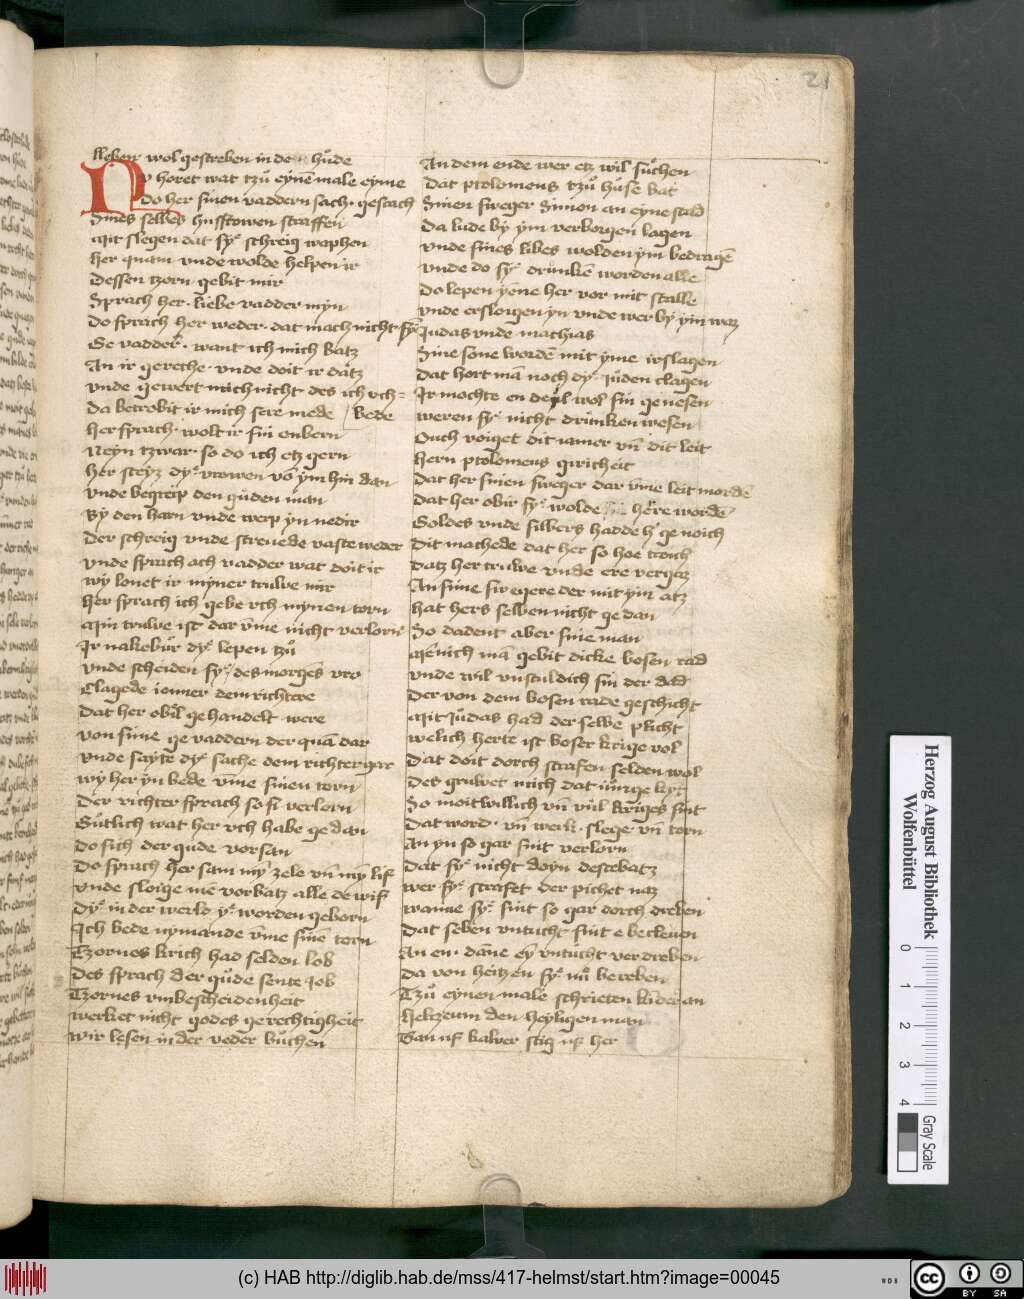 21
lleben wol gestreben in der hůde
Nv horet wat tzů eynē male eyme
Do her sinen vaddern sach gescach
Sines selbes husfrowen straffen
Mit slegen dat sy schreig waphen
her quam vnde wolde helpen ir
Dessen tzorn gebit mir
Sprach her liebe vadder myn
Do sprach her weder dat mach nicht syn
Ge vadder want ich mich vatz
An ir gereche vnde doit ir datz
vnde gewert mich nicht des ich vch
Da betrobit ir mich sere mede bede
her sprach wolt ir sin enbern
Neyn tzwar so do ich etz gern
her steyz dy vrowen vō ym hin dan
vnde begreip den gůden man
By den harn vnde werp yn nedir
Der schreig vnde strevede vaste weder
vnde sprach ach vadder wat doit ir
wy lonet ir myner truwe mir
her sprach ich gebe vch mynen torn
Min truwe ist dar vme nicht verlorn
Ir nakebůr dy lepen tzů
vnde scheiden sy des morgēs vro
Clagede iener dem richtere
Dat her obil gehandelt were
von sime gevaddern der quā dar
vnde sayte dy sache dem richter gar
wy her yn bede vme sinen torn
Der richter sprach so si verlorn
Gůtlich wat her vch habe gedan
Do sich der gude vorsan
Do sprach her sam my zele vn̄ my lif
vnde sloige me vorbatz alle de wif
Dy in der werld y worden geborn
Ich bede nymande vme sinē torn
Tzornes krich had selden lob
Des sprach der gůde sente Job
Tzornes vmbescheidenheit
werket nicht godes gerechtigheit
wir lesen in der veder bůchen
An dem ende wer etz wil sůchen
Dat ptolomeus tzů huse bat
Sinen sweger Simon an eyne stad
Da lude by ym verborgen lagen
vnde sines libes wolden ym bedragē
vnde do sy drunkē worden alle
Do lepen yene her vor mit stalle
vnde ersloigen yn vnde wer by ym waz
Judas vnde mathias
Sine sone wordē mit yme irslagen
Dat hort mā noch dy Jůden clagen
Ir mochte en deyl wol sin genesen
weren sy nicht drunken wesen
Ouch voiget dit iamer vn̄ dit leit
hern ptolomeus giricheit
Dat her sinen sweger dar vme leit mordē
Dat her obir sy wolde here wordē
Goldes vnde silbers hadde h genoich
Dit machede dat her so hoe troich
Datz her truwe vnde ere vergaz
An sime swegere der mit ym atz
hat hers selben nicht gedan
So dadent aber sine man
Menich mā gebit dicke bosen rad
vnde wil vnsculdich sin der dad
Der von dem bosen rade geschicht
Mit Jůdas had der selbe plicht
welich herte ist boser krige vol
Dat doit dorch strafen selden wol
Des gruwet mich dat
So moitwillich vn̄ vůl kriges sint
Dat word vn̄ werk slege vn̄ torn
An yn so gar sint verlorn
Dat sy nicht doyn destebatz
wer sy strafet der pichet natz
wanne sy sint so gar dorch dreben
Dat seben vntucht sint e becleven
An en dāne ey vntucht verdreben
Da von heitzen sy nů bereben
Tzů eynen male schrieten kinder an
helizeum den heyligen man
Gan uf kalwer stig uf her
Herzog August Bibliothek
Wolfenbüttel
0 1 2 3 4
Gray Scale
(c) HAB http://diglib.hab.de/mss/417-helmst/start.htm?image=00045
WDB
cc BY SA